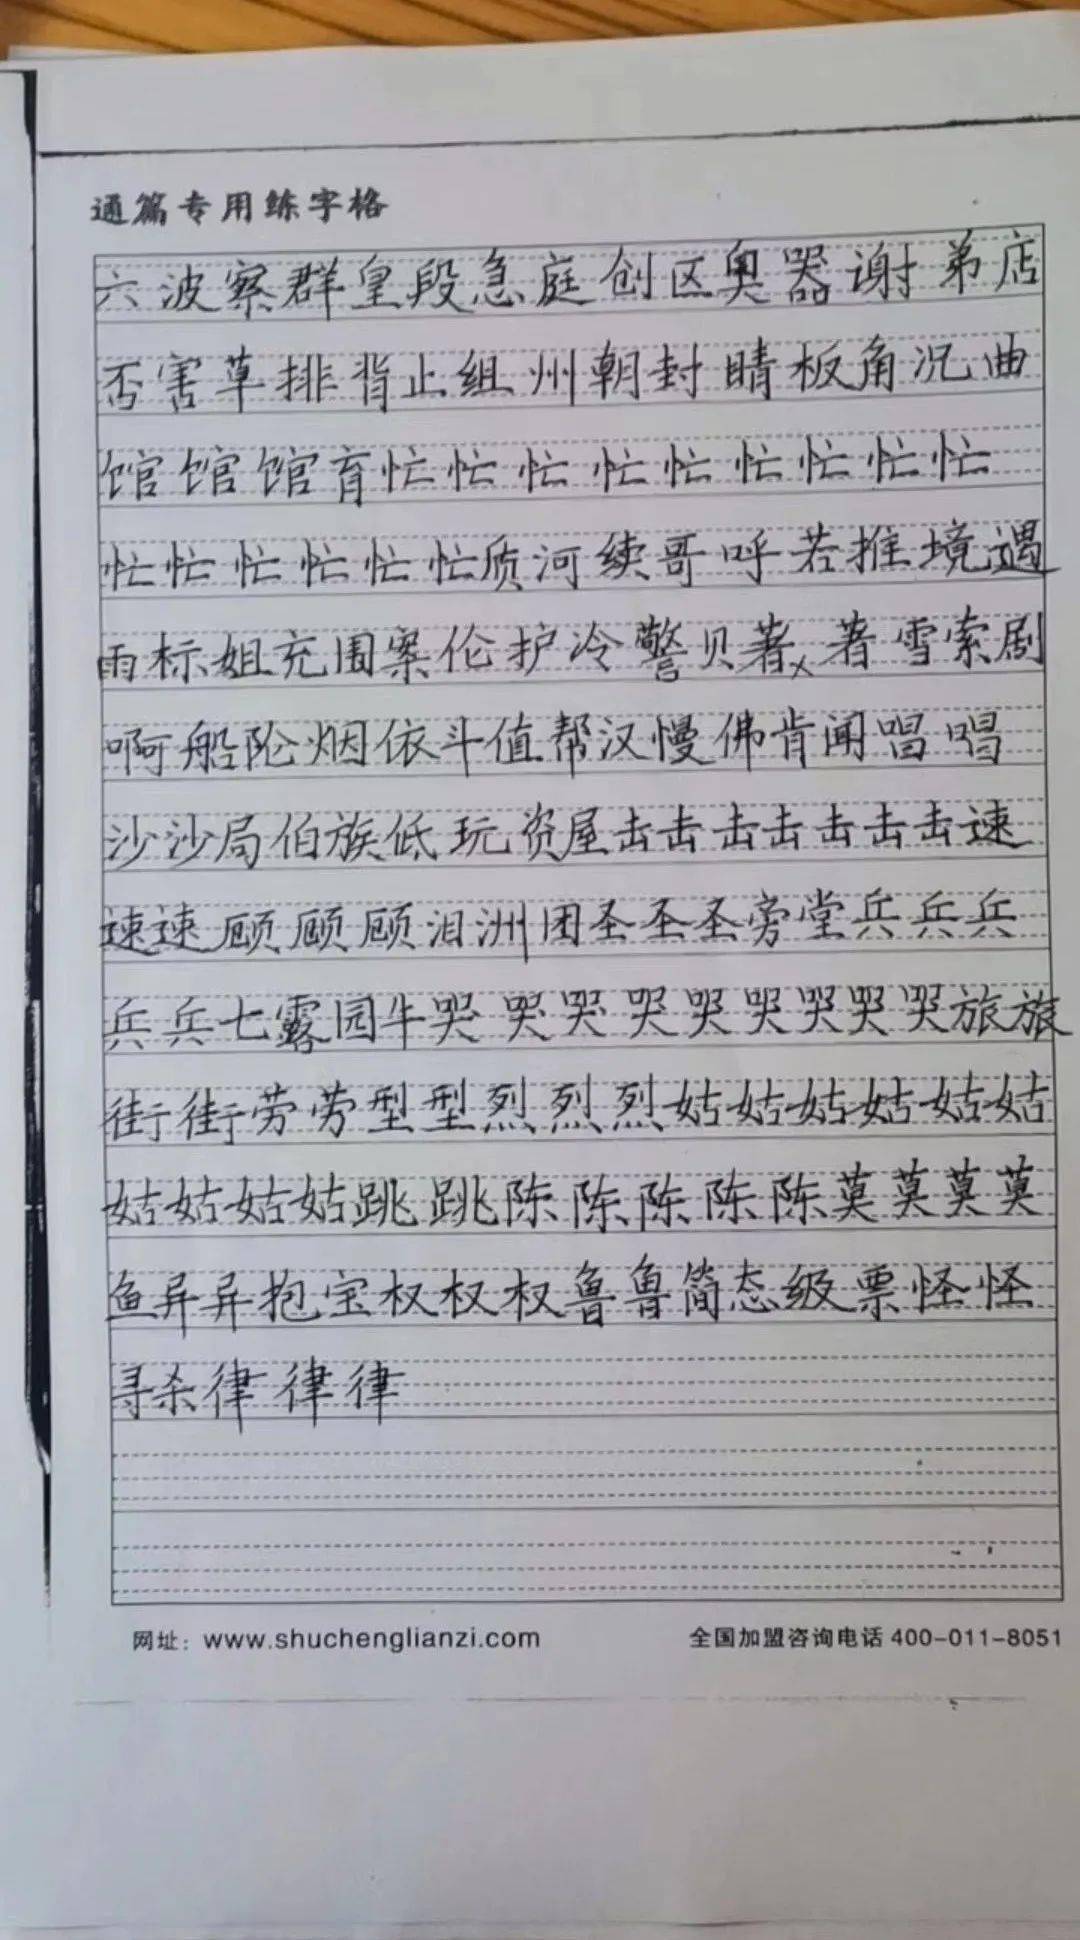 通篇专用练字格
六波察群皇段急庭创区奥器谢弟店
否害草排背止组州朝封睛板角况曲
馆馆馆育忙忙忙忙忙忙忙忙忙
忙忙忙忙忙忙质河续哥呼若推境遇
雨标姐充围案伦护冷警贝著著雪索剧
啊船陀烟依斗值帮汉慢佛肯闻唱唱
沙沙局伯族低玩资屋击击击击击击击速
速速顾顾顾泪洲团圣圣圣旁堂兵兵兵
兵兵七露园牛哭哭哭哭哭哭哭哭哭旅旅
街街劳劳型型烈烈烈姑姑姑姑姑姑
姑姑姑姑跳跳陈陈陈陈陈莫莫莫莫
鱼异异抱宝权权权鲁鲁简态级票怪怪
寻杀律律律
网址：www.shuchenglianzi.com 全国加盟咨询电话400-011-8051